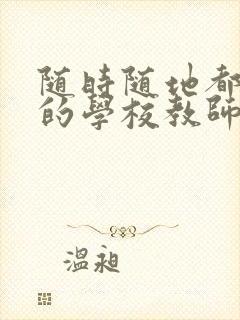 随時随地都
的學校教師
溫昶